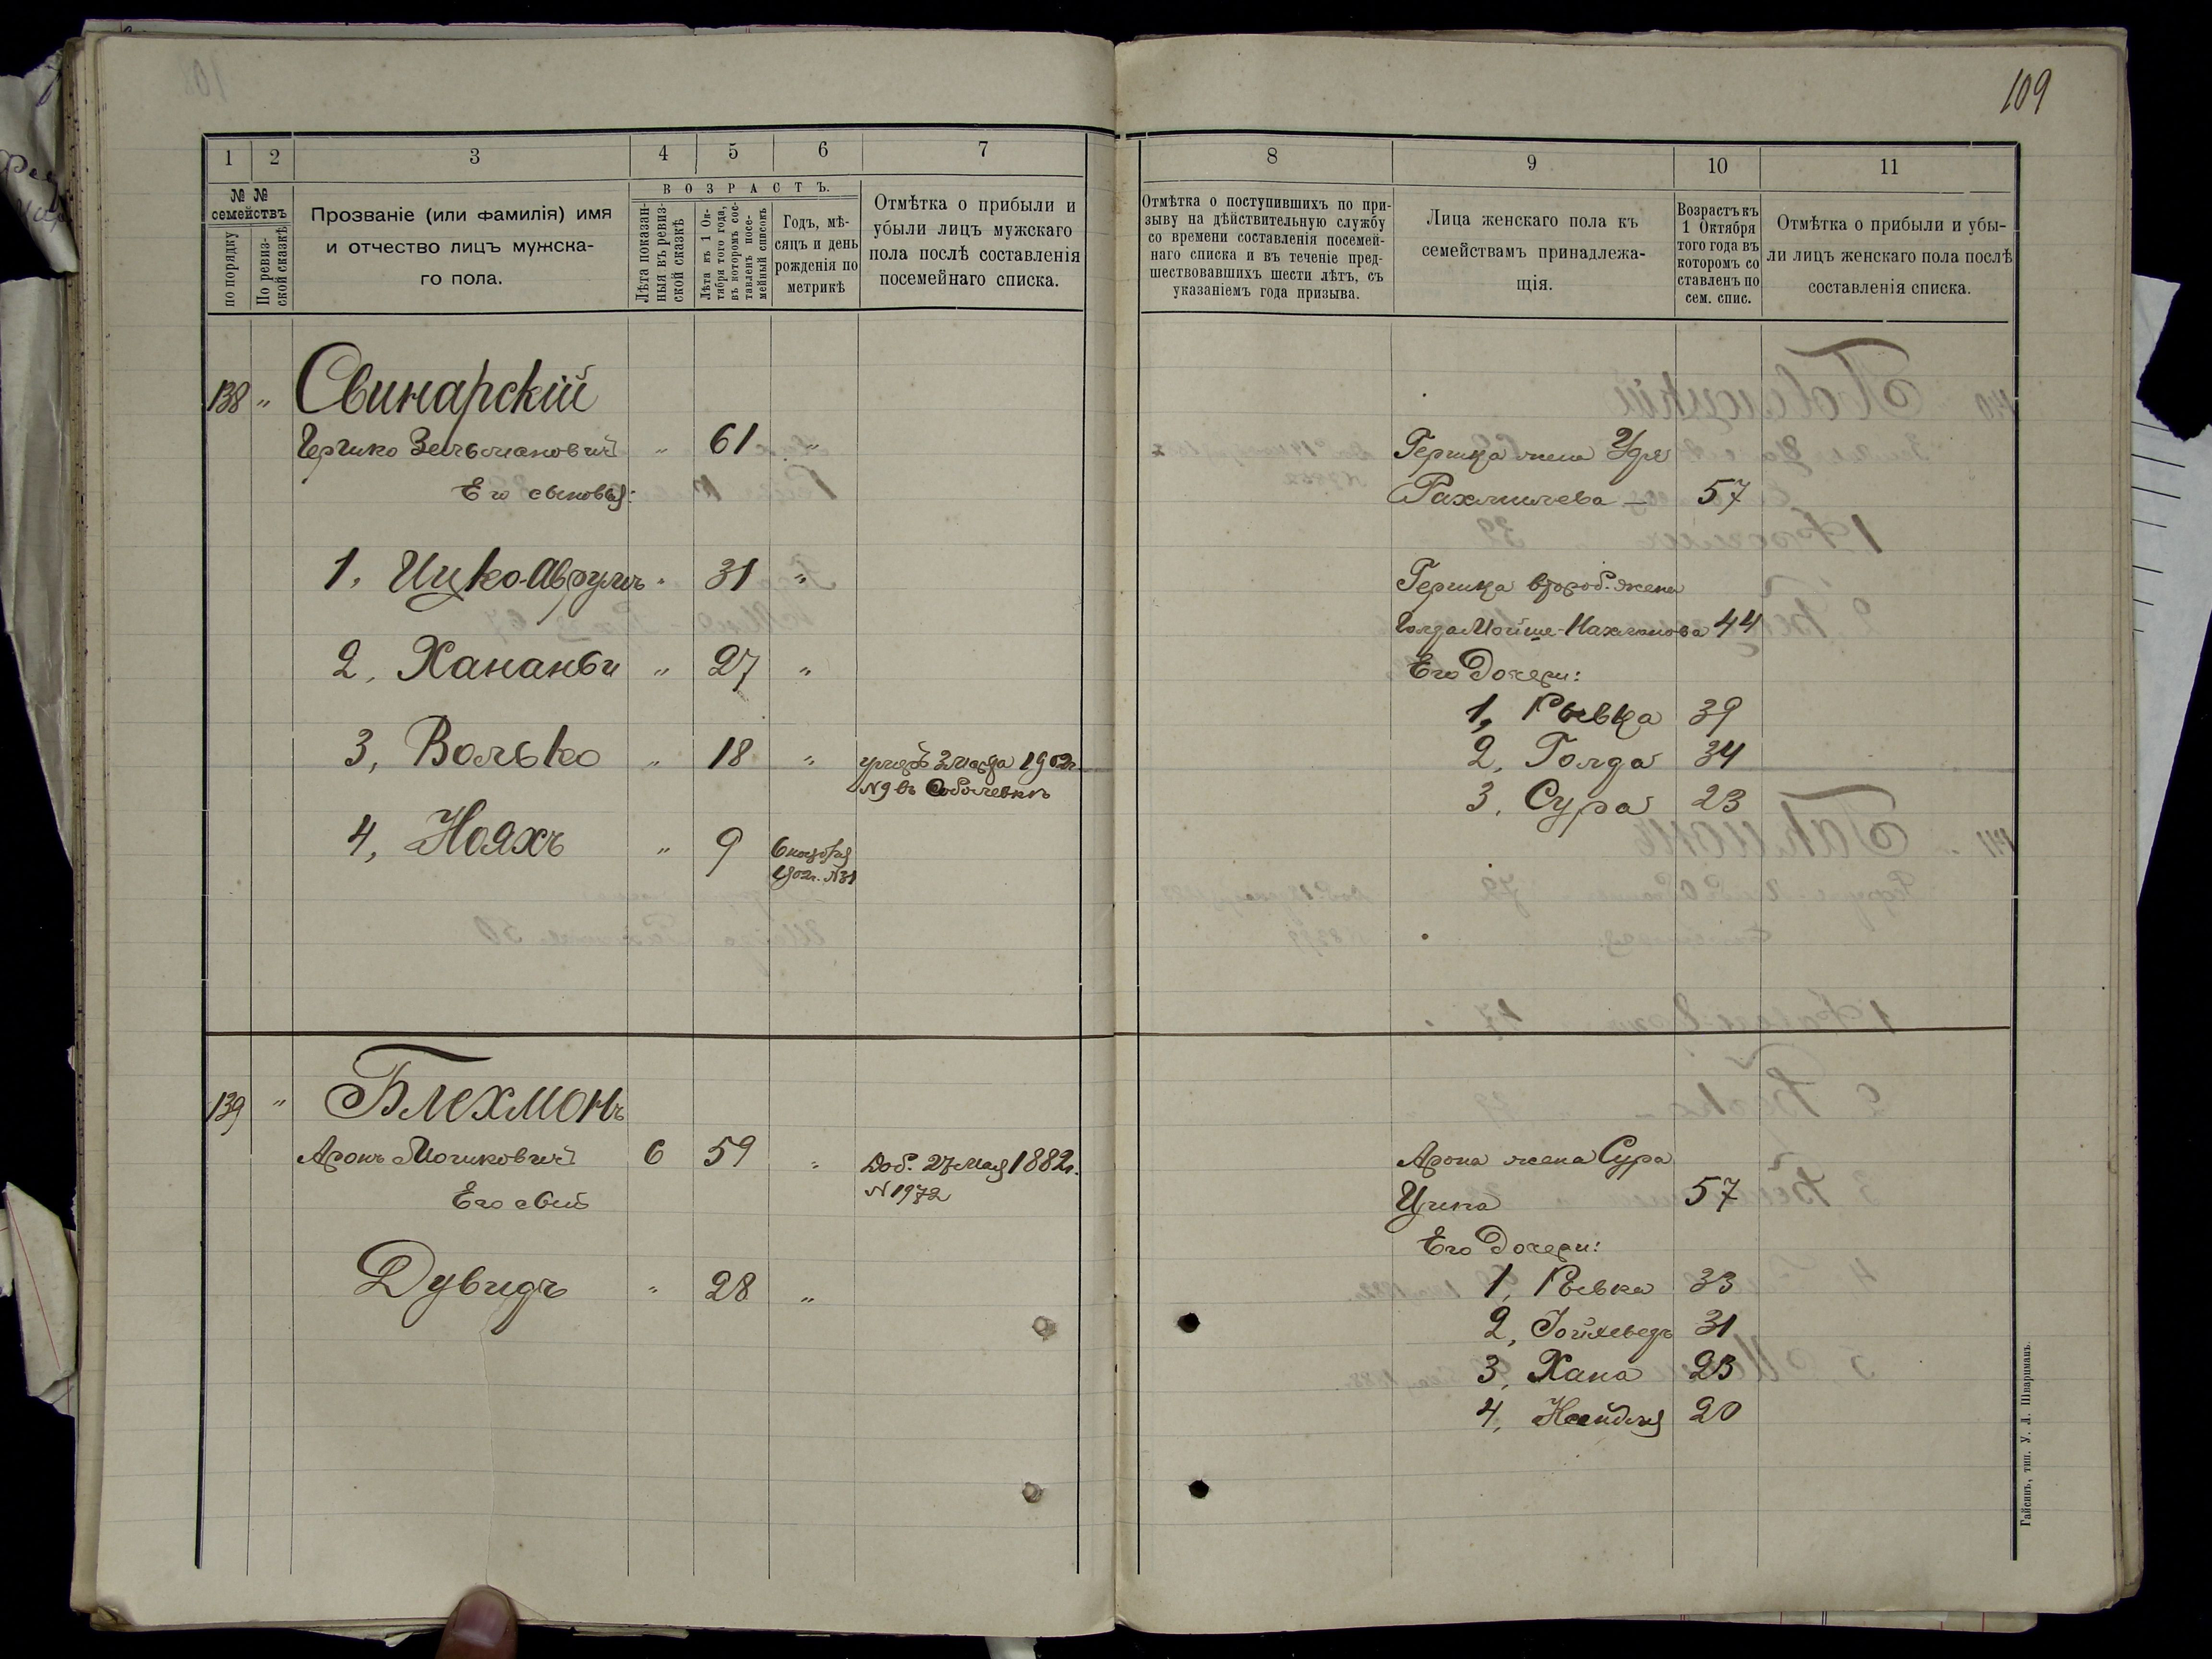 109
1
2
3
4
5
6
7
№ №
семействъ
по порядку
По ревиз-
ской сказкѣ
Прозваніе (или фамилія) имя
и отчество лицъ мужска-
го пола.
ВОЗРАСТЪ.
Лѣта показан-
ныя въ ревиз-
ской сказкѣ
Лѣта къ 1 Ок-
тября того года,
въ которомъ сос-
тавленъ посе-
мейный списокъ
Годъ, мѣ-
сяцъ и день
рожденія по
метрикѣ
Отмѣтка о прибыли и
убыли лицъ мужскаго
пола послѣ составленія
посемейнаго списка.
138 " Свинарскій
Гершко Зельмановичъ " 61 "
Его сыновья:
1, Ицко-Аврумъ " 31 "
2, Хананьи " 27 "
3, Волько " 18 " умеръ 3 марта 1902г.
№9 въ Соболевкѣ
4, Нояхъ " 9 6 ноября
1902г. №31
139 " Блехманъ
Аронъ Мошковичъ 6 59 " Доб. 27 мая 1882г.
№1972
Его сынъ
Дувидъ " 28 "
8
9
10
11
Отмѣтка о поступившихъ по при-
зыву на дѣйствительную службу
со времени составленія посемей-
наго списка и въ теченіе пред-
шествовавшихъ шести лѣтъ, съ
указаніемъ года призыва.
Лица женскаго пола къ
семействамъ принадлежа-
щія.
Возрастъ къ
1 Октября
того года въ
которомъ со
ставленъ по
сем. спис.
Отмѣтка о прибыли и убы-
ли лицъ женскаго пола послѣ
составленія списка.
Гершка жена Удя
Рахмилева — 57
Гершка второб. жена
Голда Мойше-Нахманова 44
Его дочери:
1, Ривка 39
2, Голда 34
3, Сура 23
Арона жена Сура
Ципа 57
Его дочери:
1, Ривка 33
2, Іойхеведъ 31
3, Хана 23
4, Нейдля 20
Гайсинъ, тип. У. Л. Шварцманъ.